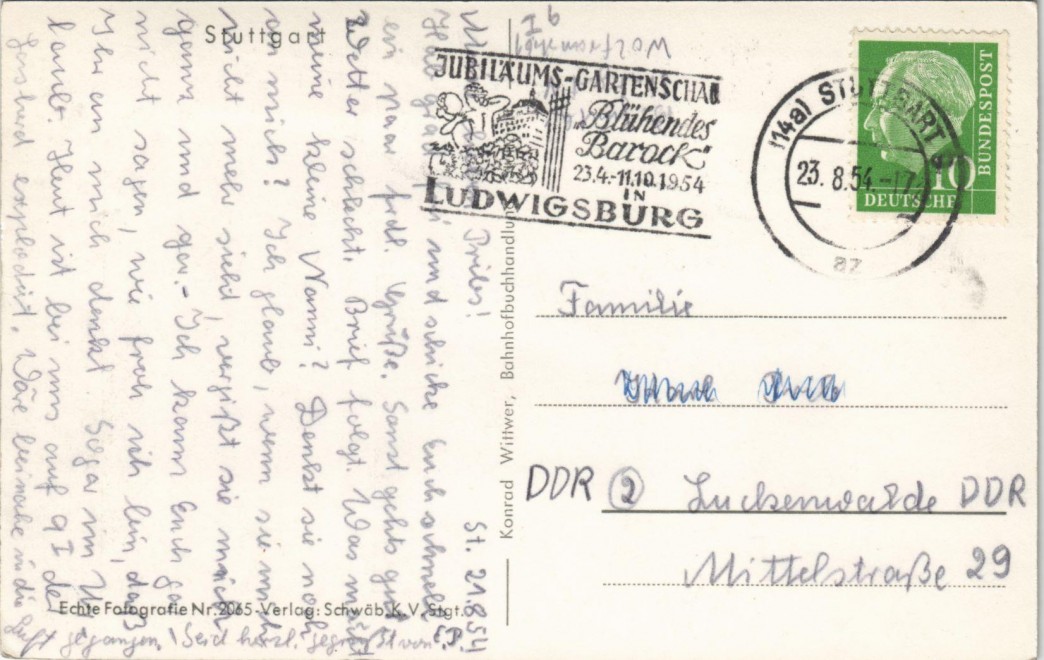 Stuttgart
JUBILÄUMS-GARTENSCHAU
"Blühendes
Barock"
23.4.-11.10.1954
IN
LUDWIGSBURG
(14a) STUTTGART 9
23.8.54.-17
az
10
DEUTSCHE
BUNDESPOST
St. 21.8.54
und schicke Euch schnell
ein paar frdl. Grüße. Sonst gehts gut
Wetter schlecht. Brief folgt. Was macht
meine kleine Nanni? Denkt sie noch
an mich? Ich glaub, wenn sie mich
nicht mehr sieht, vergißt sie mich
ganz und gar.- Ich kann Euch gar
nicht sagen, wie froh ich bin, daß
Ihr an mich denkt. Sogar im
laubt. Heut ist bei uns auf 9 I der
explodiert. Wäre beinahe in die
Luft gegangen. Seid herzl. gegrüßt von E.P.
Echte Fotografie Nr. 2065 - Verlag: Schwäb. K.V. Stgt.
Konrad Wittwer, Bahnhofbuchhandlung
Familie
DDR ② Luckenwalde DDR
Mittelstraße 29